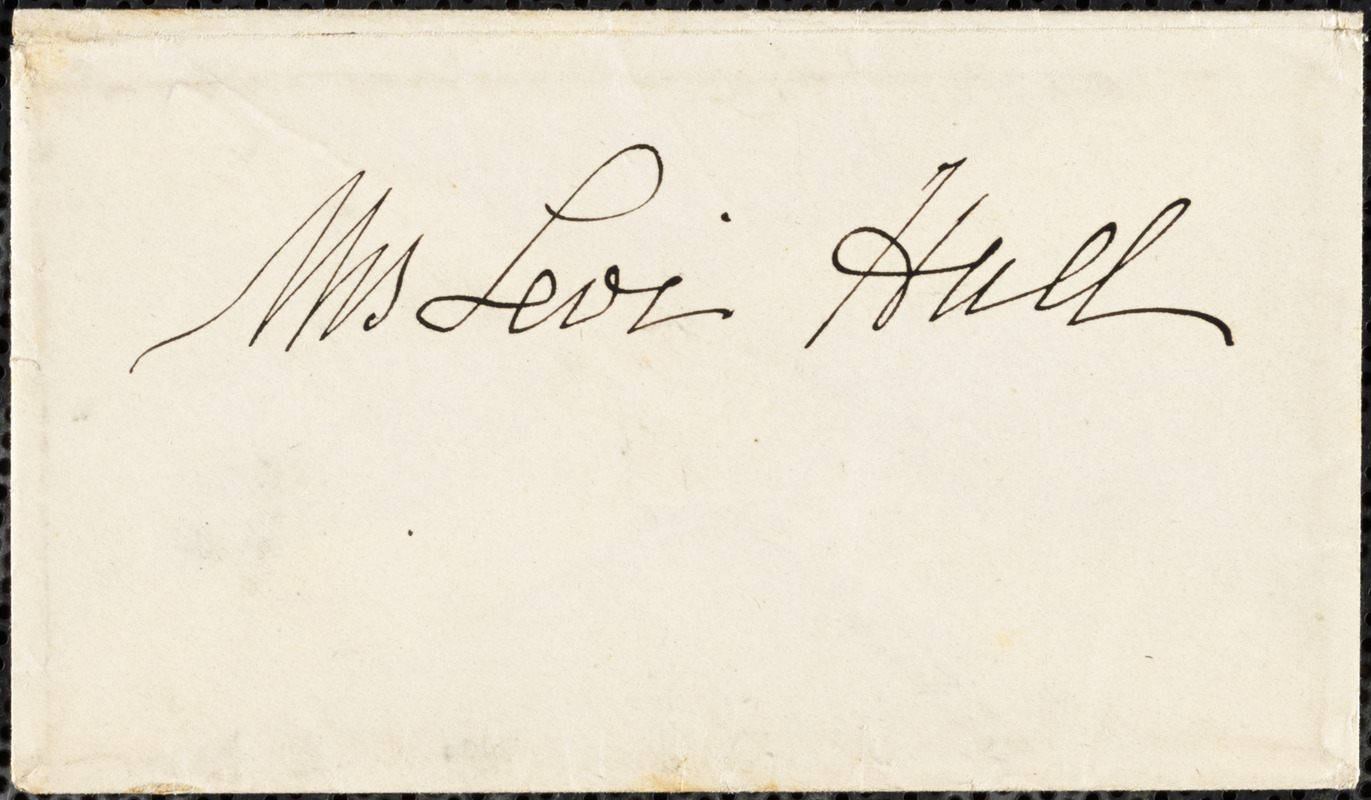 Mrs Levi Hull